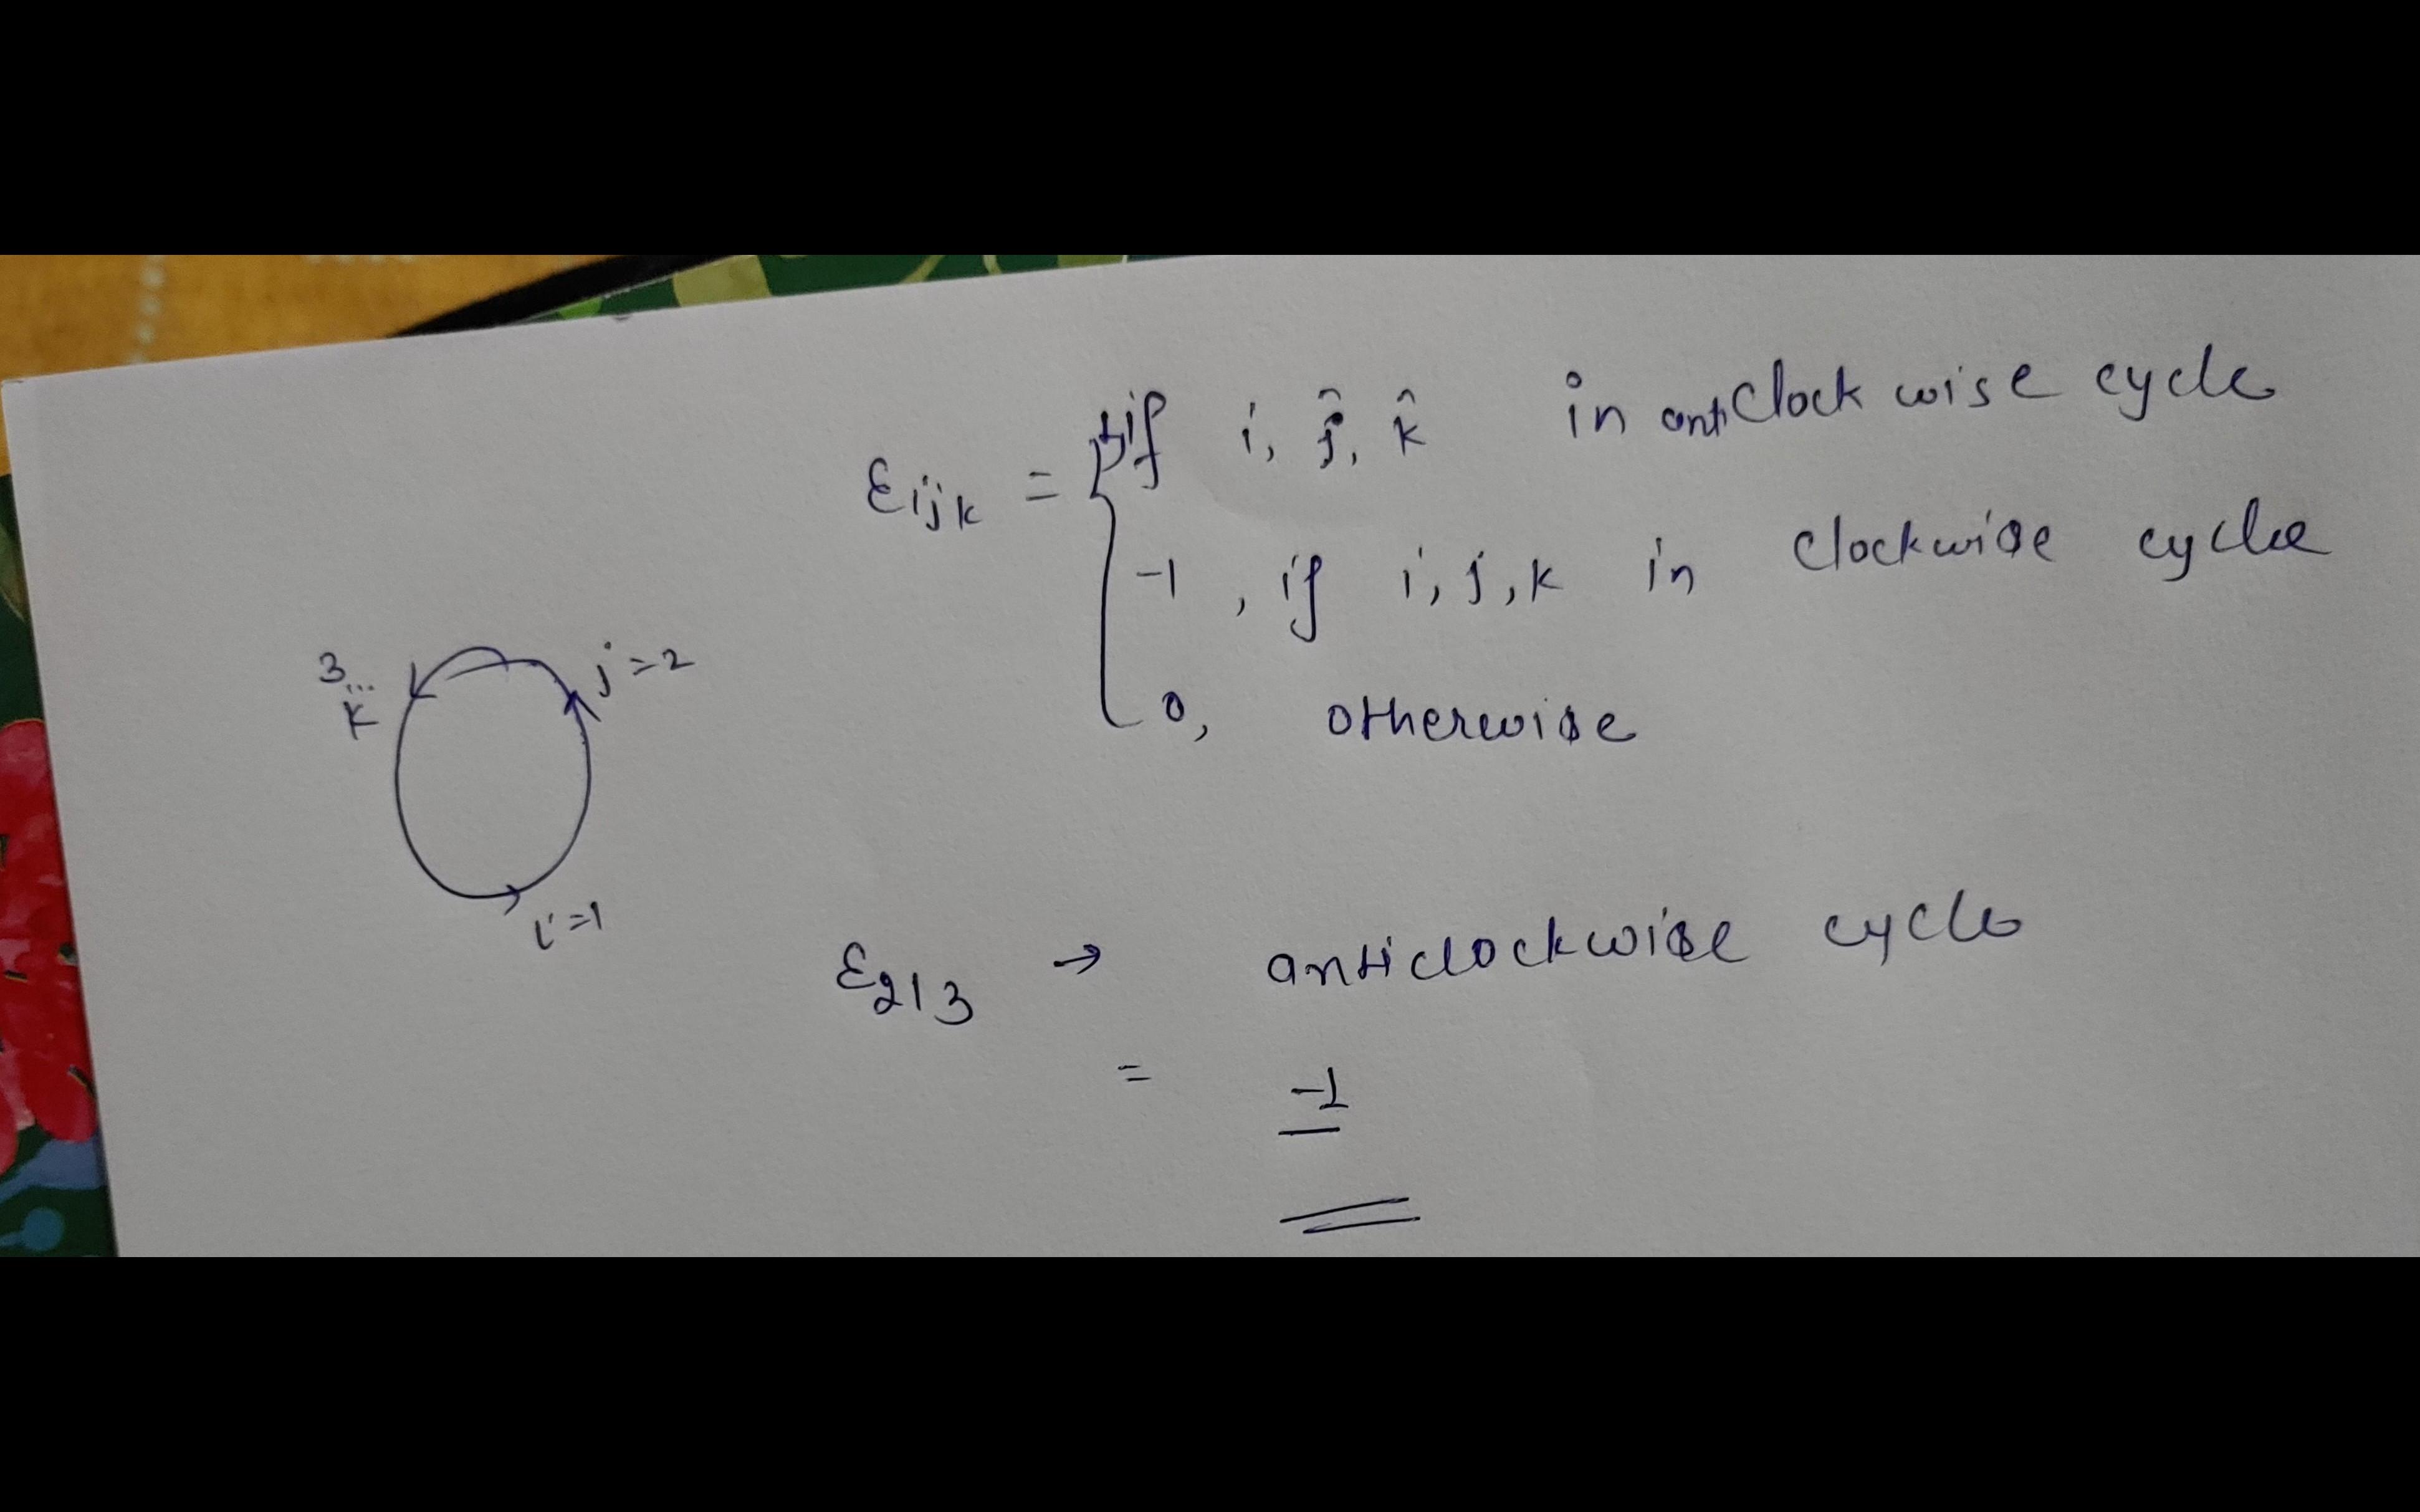 εijk = { +if i, ĵ, k̂ in anticlockwise cycle
-1, if i, j, k in clockwise cycle
0, otherwise
3 k
j=2
i=1
ε213 → anticlockwise cycle
= -1